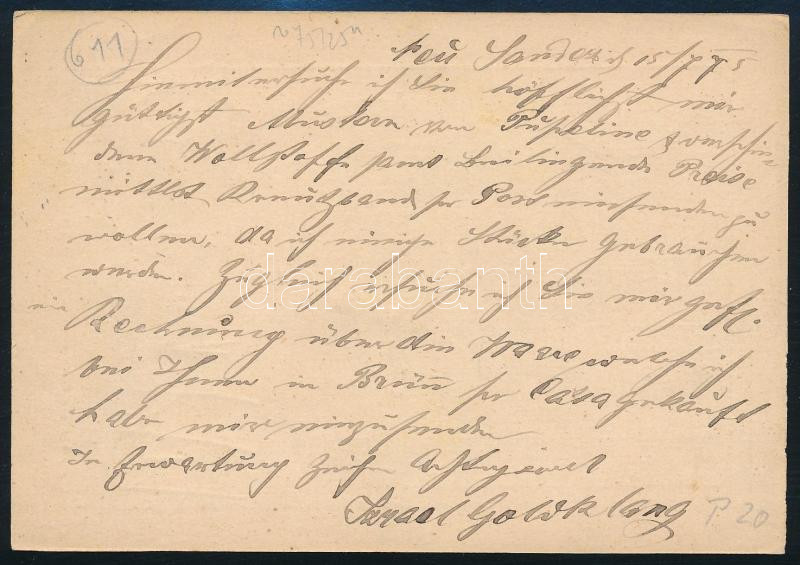 611
Neu Sandez d 15/7 75
Hiermit ersuche ich Sie höfflichst mir
güttigst Mustern von Pupeline & verschie-
dene Wollstoffe samt beiligende Preise
mittlst Kreutzband per Post einsenden zu
wollen, da ich einige Stücke gebrauchen
werde. Zugleich ersuche ich Sie mir gefl.
Rechnung über die Ware welche ich
bei Ihnen in Brünn per Cassa gekauft
habe mir einzusenden
In Erwartung zeichne Achtungsvoll
Israel Goldklang
P 20
darabanth